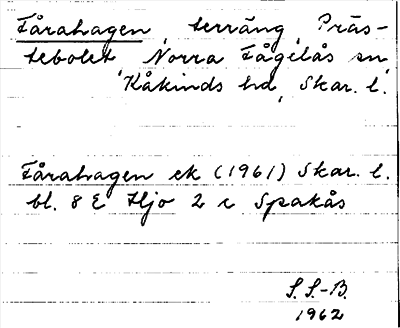 Fårahagen, terräng, Präs-
tebolet, Norra Fågelås sn,
Kåkinds hd, Skar. l.
Fårahagen ek (1961) Skar. l.
bl. 8 E Hjo 2 c Spakås
S. S.-B.
1962